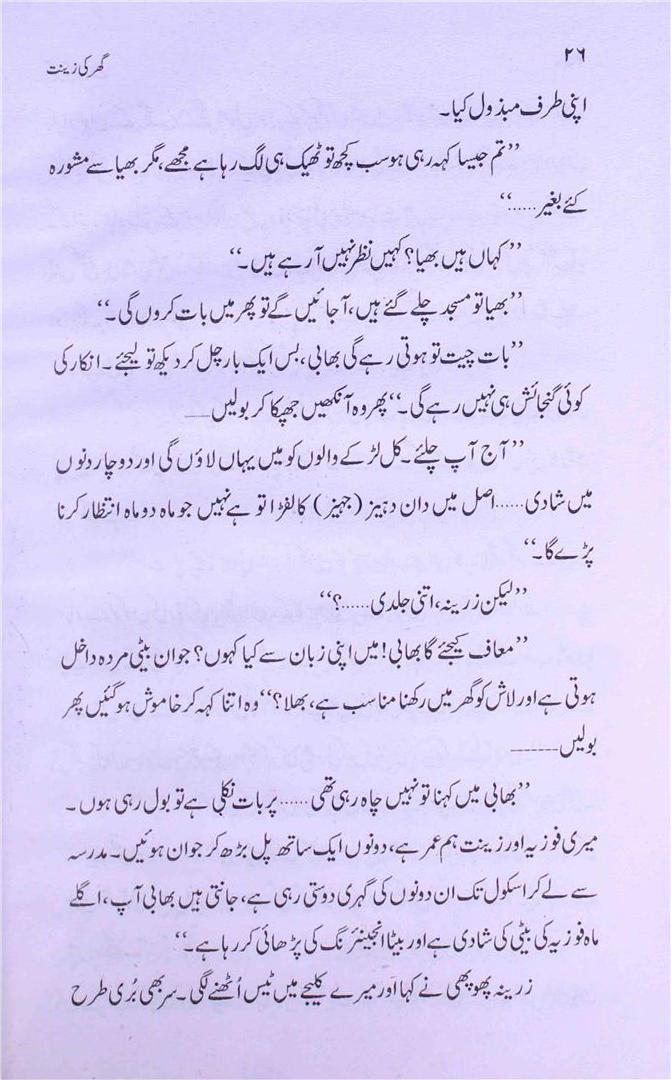 ۲۶
گھر کی زینت
اپنی طرف مبذول کیا۔
’’تم جیسا کہہ رہی ہو سب کچھ تو ٹھیک ہی لگ رہا ہے مجھے، مگر بھیا سے مشورہ
کئے بغیر.....‘‘
’’کہاں ہیں بھیا؟ کہیں نظر نہیں آ رہے ہیں۔‘‘
’’بھیا تو مسجد چلے گئے ہیں، آ جائیں گے تو پھر میں بات کروں گی۔‘‘
’’بات چیت تو ہوتی رہے گی بھابی، بس ایک بار چل کر دیکھ تو لیجئے۔ انکار کی
کوئی گنجائش ہی نہیں رہے گی۔‘‘ پھر وہ آنکھیں جھپکا کر بولیں ___
’’آج آپ چلئے۔ کل لڑکے والوں کو میں یہاں لاؤں گی اور دو چار دنوں
میں شادی..... اصل میں دان دہیز (جہیز) کا لفڑا تو ہے نہیں جو ماہ دو ماہ انتظار کرنا
پڑے گا۔‘‘
’’لیکن زرینہ، اتنی جلدی.....؟‘‘
’’معاف کیجئے گا بھابی! میں اپنی زبان سے کیا کہوں؟ جوان بیٹی مردہ داخل
ہوتی ہے اور لاش کو گھر میں رکھنا مناسب ہے، بھلا؟‘‘ وہ اتنا کہہ کر خاموش ہو گئیں پھر
بولیں ______
’’بھابی میں کہنا تو نہیں چاہ رہی تھی..... پر بات نکلی ہے تو بول رہی ہوں۔
میری فوزیہ اور زینت ہم عمر ہے، دونوں ایک ساتھ پل بڑھ کر جوان ہوئیں۔ مدرسہ
سے لے کر اسکول تک ان دونوں کی گہری دوستی رہی ہے، جانتی ہیں بھابی آپ، اگلے
ماہ فوزیہ کی بیٹی کی شادی ہے اور بیٹا انجینئرنگ کی پڑھائی کر رہا ہے۔‘‘
زرینہ پھوپھی نے کہا اور میرے کلیجے میں ٹیس اُٹھنے لگی۔ سر بھی بُری طرح